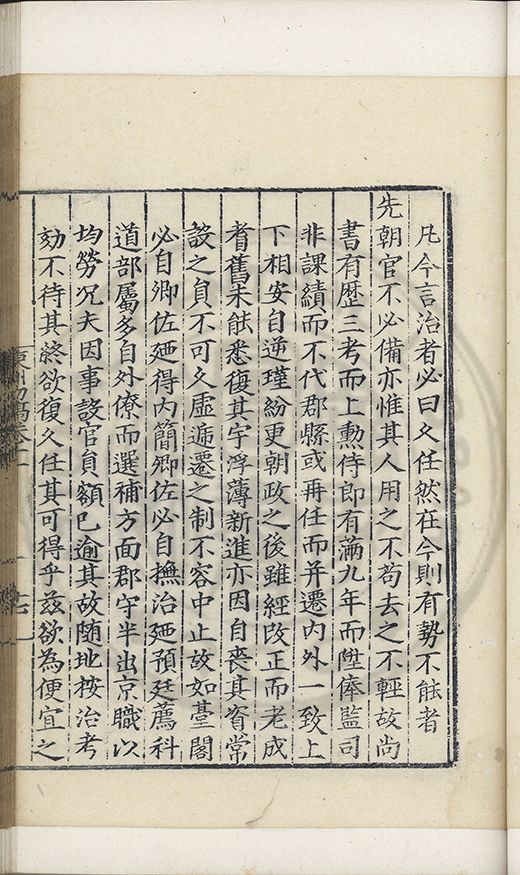 凡今言治者必曰久任然在今則有勢不能者
先朝官不必備亦惟其人用之不苟去之不輕故尚
書有歷三考而上勲侍郎有滿九年而陞俸監司
非課績而不代郡縣或再任而并遷内外一致上
下相安自逆瑾紛更朝政之後雖經改正而老成
耆舊未能悉復其宇浮薄新進亦因自喪其資常
設之員不可久虚遞遷之制不容中止故如臺閣
必自卿佐廼得内簡卿佐必自撫治廼預廷薦科
道部屬多自外僚而選補方面郡守半出京職以
均勞况夫因事設官員額已逾其故随地按治考
効不待其終欲復久任其可得乎兹欲為便宜之